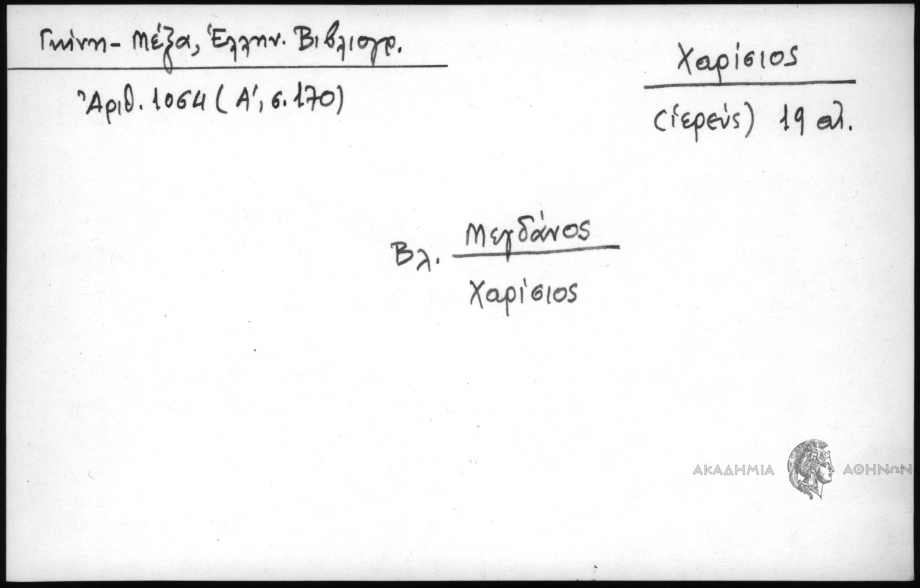 Γκίνη - Μέξα, Ἑλλην. Βιβλιογρ.
Ἀριθ. 1064 (Α΄, σ. 170)
Χαρίσιος
(ἱερεύς) 19 αἰ.
Βλ. Μεγδάνος
Χαρίσιος
ΑΚΑΔΗΜΙΑ ΑΘΗΝΩΝ